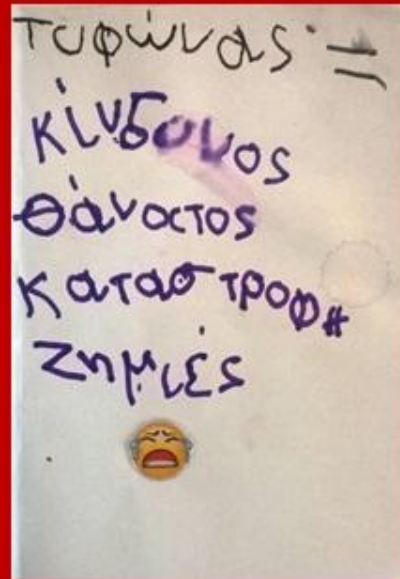 τυφώνας =
κίνδυνος
θάνατος
καταστροφη
ζημιές